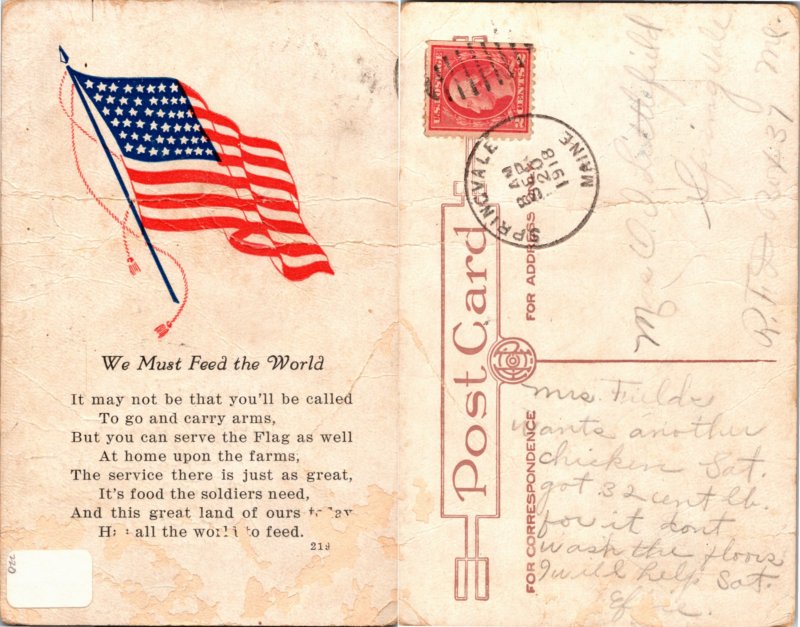 We Must Feed the World
It may not be that you'll be called
To go and carry arms,
But you can serve the Flag as well
At home upon the farms,
The service there is just as great,
It's food the soldiers need,
And this great land of ours today
Has all the world to feed.
219
022
U.S. POSTAGE
2 CENTS 2
SPRINGVALE
MAINE
8 AM
SEP
20
1918
Post Card
FOR ADDRESS
FOR CORRESPONDENCE
Mrs O. Littlefield
Springvale
R.F.D. Box 37 Me.
Mrs. Fields
wants another
chicken Sat.
got 32 cent lb.
for it dont
wash the floors
I will help Sat.